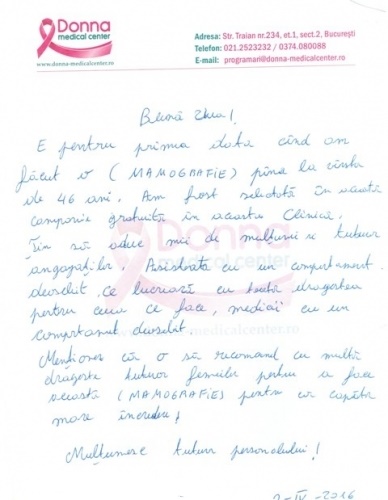 Donna
medical center
www.donna-medicalcenter.ro
Adresa: Str. Traian nr.234, et.1, sect.2, București
Telefon: 021.2523232 / 0374.080088
E-mail: programari@donna-medicalcenter.ro
Bună ziua!
E pentru prima dată cînd am
făcut o (MAMOGRAFIE) pîna la vîrsta
de 46 ani. Am fost solicitată în această
campanie gratuită în aceasta Clinică.
Țin să aduc mii de mulțumiri tuturor
angajaților. Asistenta cu un comportament
deosebit ce lucrează cu toată dragostea
pentru ceea ce face, medici cu un
comportament deosebit.
Menționez că o să recomand cu multă
dragoste tuturor femeilor pentru a face
această (MAMOGRAFIE) pentru cu
mare încredere!
Mulțumesc tuturor personalului!
2-IV-2016
Donna
medical center
www.donna-medicalcenter.ro